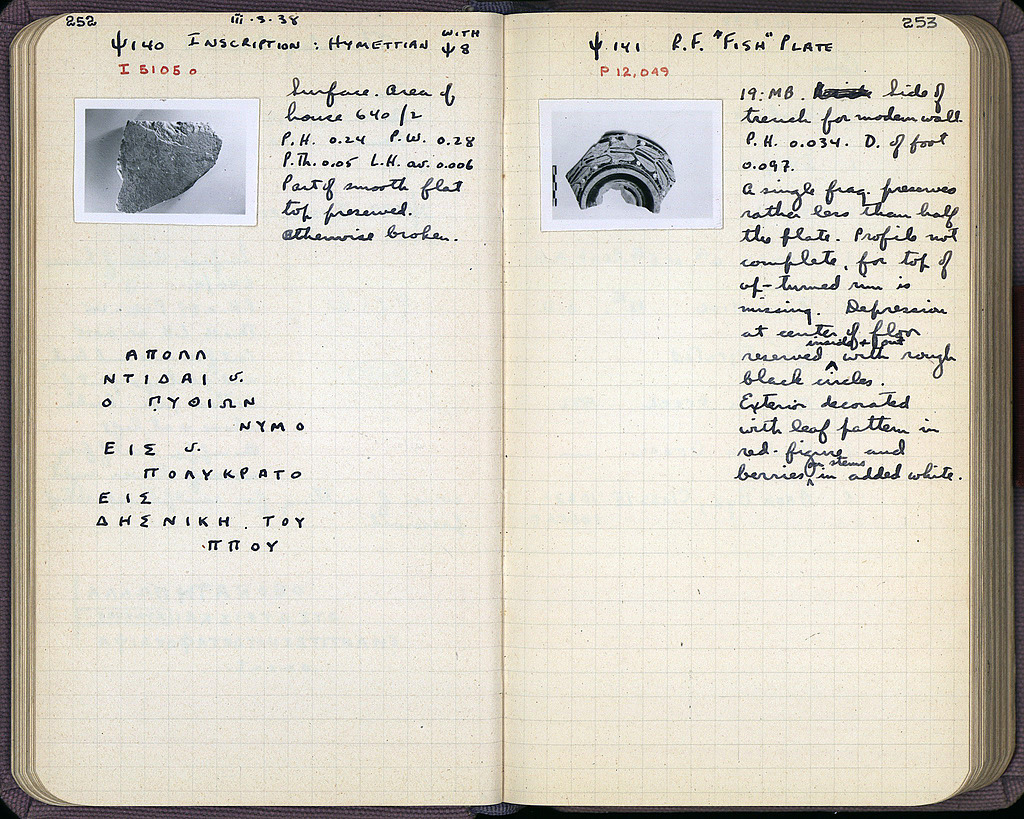 252
III·3·38
Ψ140 INSCRIPTION : HYMETTIAN WITH Ψ8
I 5105 o
Surface. Area of
house 640/2
P.H. 0.24 P.W. 0.28
P.Th. 0.05 L.H. av. 0.006
Part of smooth flat
top preserved.
Otherwise broken.
ΑΠΟΛΛ
ΝΤΙΔΑΙ υ.
Ο ΠΥΘΙΩΝ
ΝΥΜΟ
ΕΙΣ υ.
ΠΟΛΥΚΡΑΤΟ
ΕΙΣ
ΔΗΣΝΙΚΗ. ΤΟΥ
ΠΠΟΥ
253
Ψ 141 R.F. "FISH" PLATE
P 12,049
19:MB. Side of
trench for modern wall.
P.H. 0.034. D. of foot
0.097.
A single frag. preserves
rather less than half
the plate. Profile not
complete, for top of
up-turned rim is
missing. Depression
at center of floor
reserved inside & out with rough
black circles.
Exterior decorated
with leaf pattern in
red-figure and
berries on stems in added white.